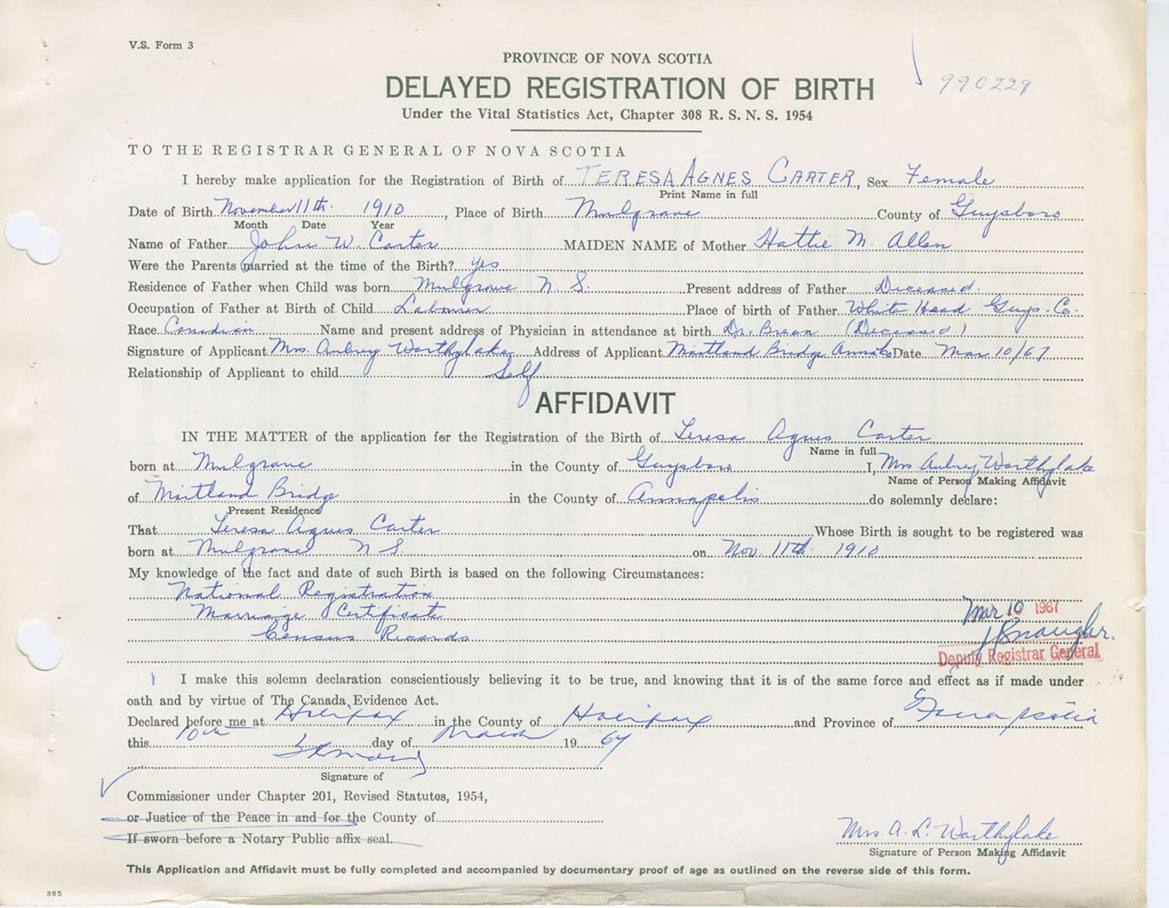 V.S. Form 3
PROVINCE OF NOVA SCOTIA
DELAYED REGISTRATION OF BIRTH
990229
Under the Vital Statistics Act, Chapter 308 R. S. N. S. 1954
TO THE REGISTRAR GENERAL OF NOVA SCOTIA
I hereby make application for the Registration of Birth of TERESA AGNES CARTER, Sex Female
Print Name in full
Date of Birth November 11th. 1910, Place of Birth Mulgrave County of Guysboro
Month Date Year
Name of Father John W. Carter MAIDEN NAME of Mother Hattie M. Allen
Were the Parents married at the time of the Birth? yes
Residence of Father when Child was born Mulgrave N S. Present address of Father Deceased
Occupation of Father at Birth of Child Laborer Place of birth of Father White Head Guys. Co.
Race Canadian Name and present address of Physician in attendance at birth Dr. (Deceased)
Signature of Applicant Mrs. Aubrey Worthylake Address of Applicant Maitland Bridge, Annap Date Mar 10/67
Relationship of Applicant to child Self
AFFIDAVIT
IN THE MATTER of the application for the Registration of the Birth of Teresa Agnes Carter
Name in full
born at Mulgrave in the County of Guysboro I, Mrs Aubrey Worthylake
Name of Person Making Affidavit
of Maitland Bridge in the County of Annapolis do solemnly declare:
Present Residence
That Teresa Agnes Carter Whose Birth is sought to be registered was
born at Mulgrave N S. on Nov. 11th. 1910
My knowledge of the fact and date of such Birth is based on the following Circumstances:
National Registration
Marriage Certificate
Census Records
Mar 10 1967
Deputy Registrar General
I make this solemn declaration conscientiously believing it to be true, and knowing that it is of the same force and effect as if made under
oath and by virtue of The Canada Evidence Act.
Declared before me at Halifax in the County of Halifax and Province of Nova Scotia
this 10th day of March 1967
Signature of
Commissioner under Chapter 201, Revised Statutes, 1954,
or Justice of the Peace in and for the County of
If sworn before a Notary Public affix seal.
Mrs. A. L. Worthylake
Signature of Person Making Affidavit
This Application and Affidavit must be fully completed and accompanied by documentary proof of age as outlined on the reverse side of this form.
385